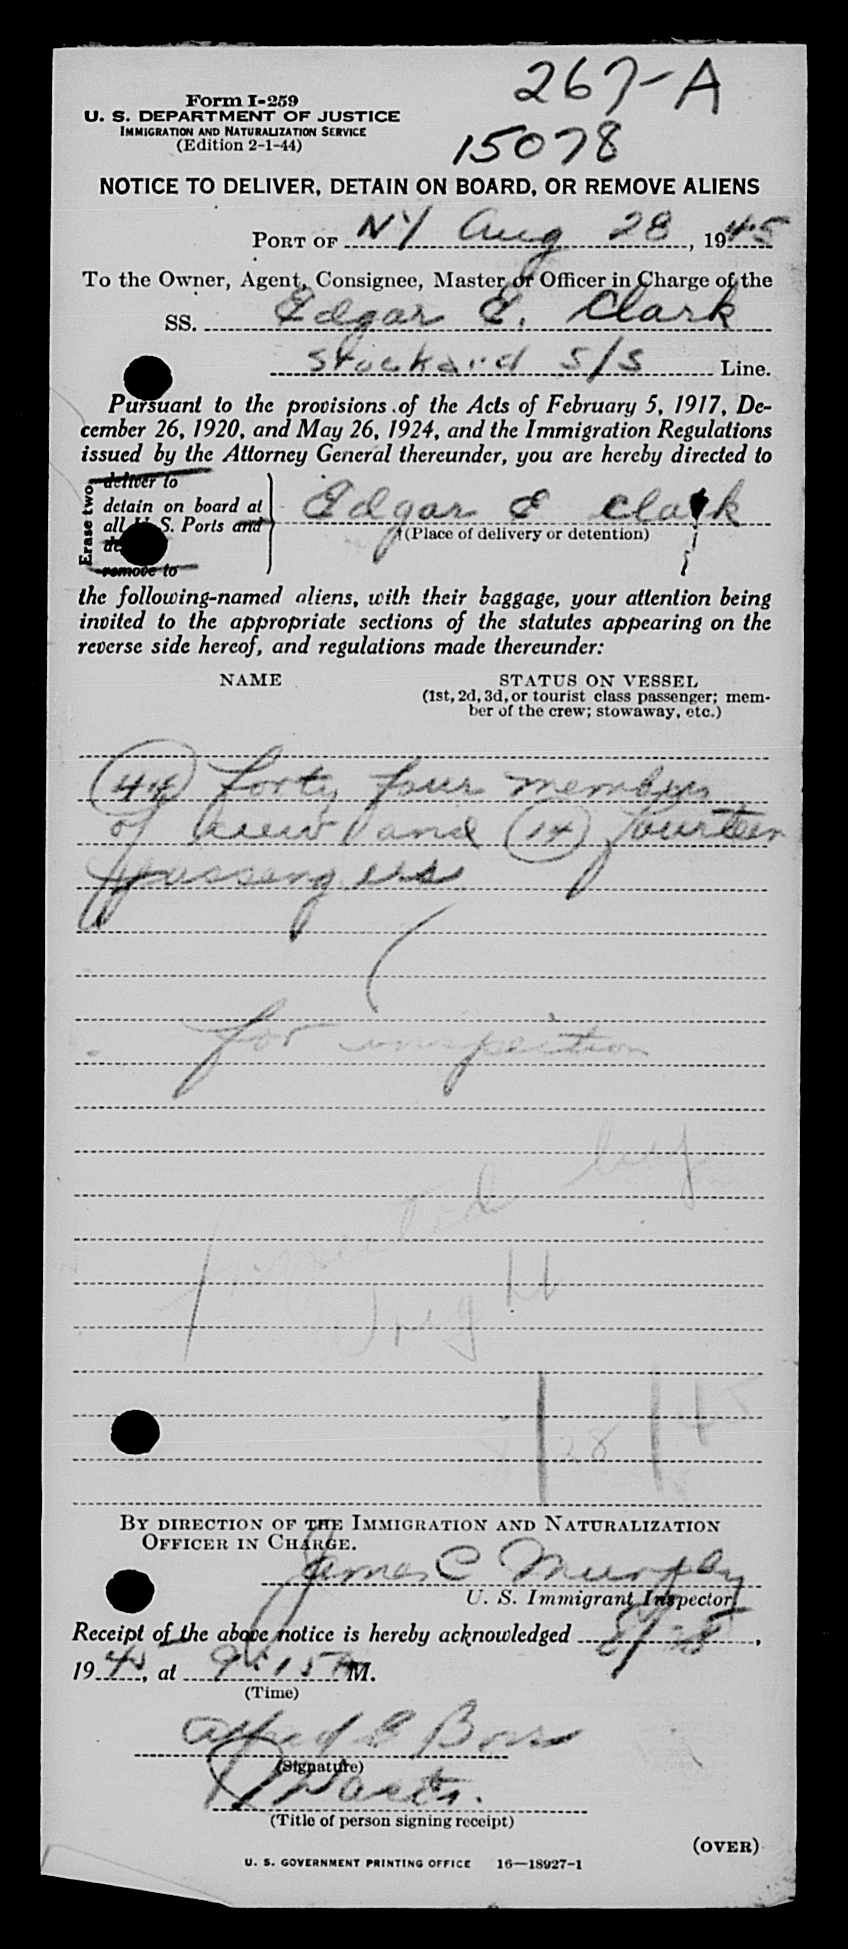 267-A
Form I-259
U. S. DEPARTMENT OF JUSTICE
IMMIGRATION AND NATURALIZATION SERVICE
(Edition 2-1-44)
15078
NOTICE TO DELIVER, DETAIN ON BOARD, OR REMOVE ALIENS
PORT OF NY Aug 28, 1945
To the Owner, Agent, Consignee, Master or Officer in Charge of the
SS. Edgar E. Clark
Stockard S/S Line.
Pursuant to the provisions of the Acts of February 5, 1917, De-
cember 26, 1920, and May 26, 1924, and the Immigration Regulations
issued by the Attorney General thereunder, you are hereby directed to
Erase two
deliver to
detain on board at
all U. S. Ports and
remove to
Edgar E Clark
(Place of delivery or detention)
the following-named aliens, with their baggage, your attention being
invited to the appropriate sections of the statutes appearing on the
reverse side hereof, and regulations made thereunder:
NAME
STATUS ON VESSEL
(1st, 2d, 3d, or tourist class passenger; mem-
ber of the crew; stowaway, etc.)
(44) forty four members
of crew and (14) fourteen
passengers
for inspection
Inspected by
8/28/45
BY DIRECTION OF THE IMMIGRATION AND NATURALIZATION
OFFICER IN CHARGE.
James C Murphy
U. S. Immigrant Inspector.
Receipt of the above notice is hereby acknowledged 8/28,
1945, at 9:15 A M.
(Time)
Alfred
(Signature)
(Title of person signing receipt)
(OVER)
U. S. GOVERNMENT PRINTING OFFICE 16—18927-1